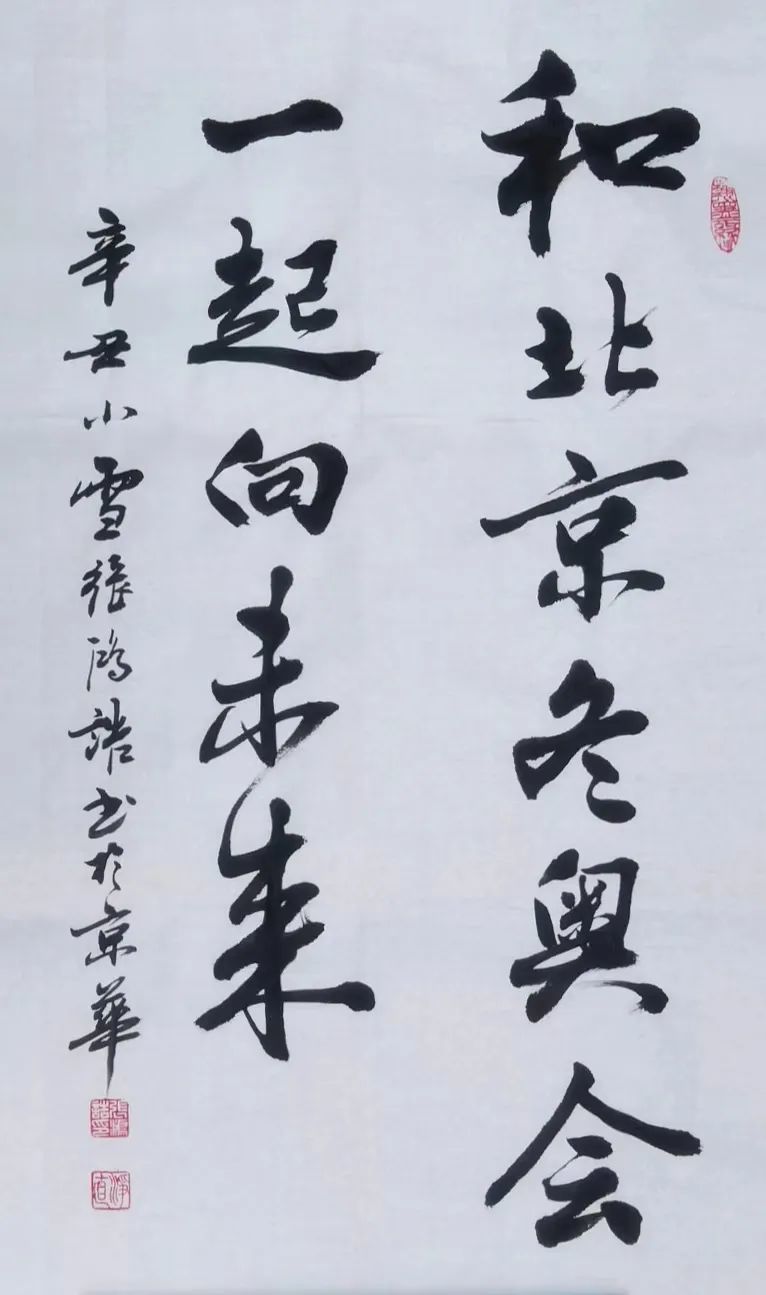 和北京冬奥会
一起向未来
辛丑小雪張鴻誥书於京華